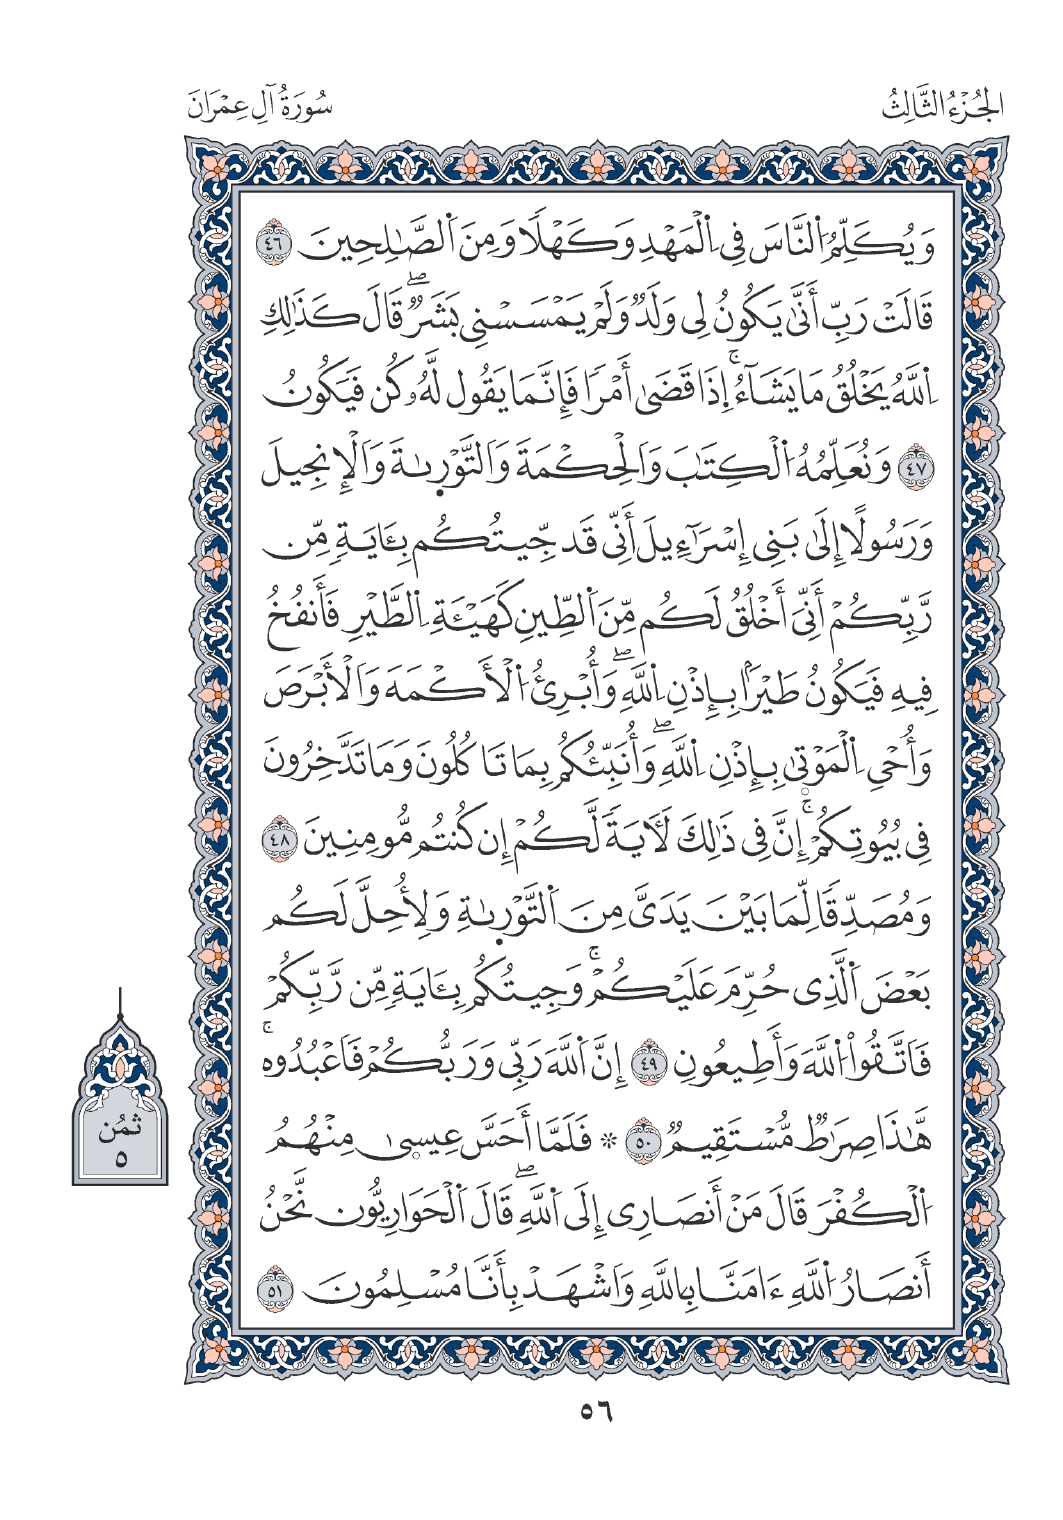 الجُزْءُ الثَّالِثُ
سُورَةُ آلِ عِمْرَانَ
وَيُكَلِّمُ اُ۬لنَّاسَ فِے اِ۬لْمَهْدِ وَكَهْلاٗ وَمِنَ اَ۬لصَّٰلِحِينَ ٤٦
قَالَتْ رَبِّ أَنّ۪ىٰ يَكُونُ لِے وَلَدٞ وَلَمْ يَمْسَسْنِے بَشَرٞۖ قَالَ كَذَٰلِكِ
اِ۬للَّهُ يَخْلُقُ مَا يَشَآءُۚ إِذَا قَضَىٰ أَمْرٗا فَإِنَّمَا يَقُول لَّهُۥ كُن فَيَكُونُ
٤٧ وَنُعَلِّمُهُ اُ۬لْكِتَٰبَ وَالْحِكْمَةَ وَالتَّوْر۪ىٰةَ وَالْإِنجِيلَ
وَرَسُولًا إِلَىٰ بَنِے إِسْرَآءِيلَ أَنِّے قَد جِّيتُكُم بِـَٔايَةٖ مِّن
رَّبِّكُمْ أَنِّيَ أَخْلُقُ لَكُم مِّنَ اَ۬لطِّينِ كَهَيْـَٔةِ اِ۬لطَّيْرِ فَأَنفُخُ
فِيهِ فَيَكُونُ طَيْرَۢا بِإِذْنِ اِ۬للَّهِۖ وَأُبْرِئُ اُ۬لْأَكْمَهَ وَالْأَبْرَصَ
وَأُحْيِ اِ۬لْمَوْت۪ىٰ بِإِذْنِ اِ۬للَّهِۖ وَأُنَبِّئُكُم بِمَا تَا كُلُونَ وَمَا تَدَّخِرُونَ
فِے بُيُوتِكُمْۚ إِنَّ فِے ذَٰلِكَ لَأٓيَةٗ لَّكُمْ إِن كُنتُم مُّومِنِينَ ٤٨
وَمُصَدِّقٗا لِّمَا بَيْنَ يَدَيَّ مِنَ اَ۬لتَّوْر۪ىٰةِ وَلِأُحِلَّ لَكُم
بَعْضَ اَ۬لَّذِے حُرِّمَ عَلَيْكُمْۚ وَجِيتُكُم بِـَٔايَةٖ مِّن رَّبِّكُمْ
فَاتَّقُواْ اُ۬للَّهَ وَأَطِيعُونِ ٤٩ إِنَّ اَ۬للَّهَ رَبِّے وَرَبُّكُمْ فَاعْبُدُوهۚ
هَّٰذَا صِرَٰطٞ مُّسْتَقِيمٞ ٥٠ ۞ فَلَمَّا أَحَسَّ عِيس۪ىٰ مِنْهُمُ
اُ۬لْكُفْرَ قَالَ مَنْ أَنصَارِے إِلَى اَ۬للَّهِۖ قَالَ اَ۬لْحَوَارِيُّون نَّحْنُ
أَنصَارُ اُ۬للَّهِ ءَامَنَّا بِاللَّهِ وَاشْهَدْ بِأَنَّا مُسْلِمُونَ ٥١
ثمُن
٥
٥٦